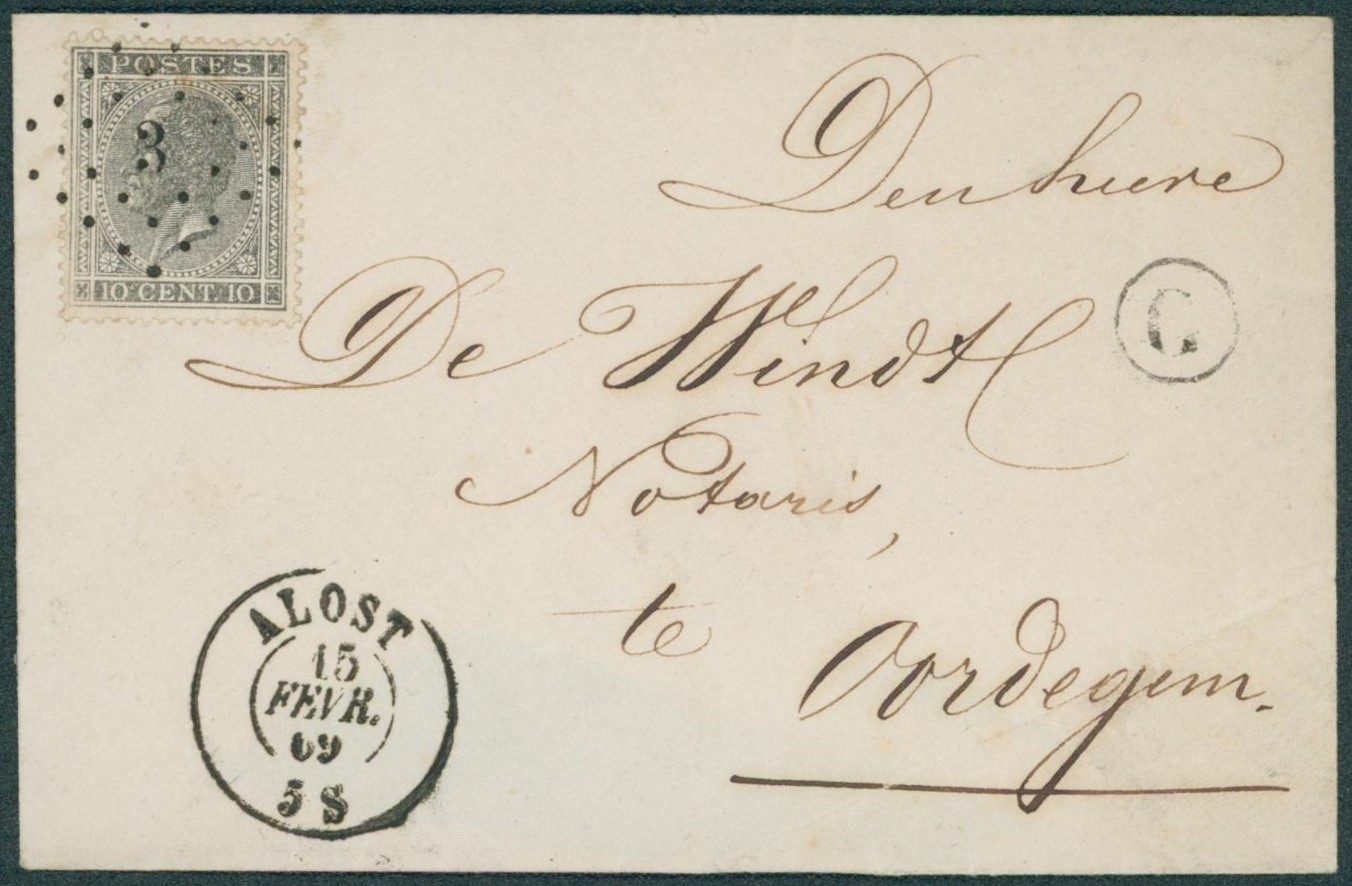 POSTES
3
10 CENT 10
Den heere
De Windt
Notaris,
te Oordegem.
G
ALOST
15
FEVR.
69
5 S